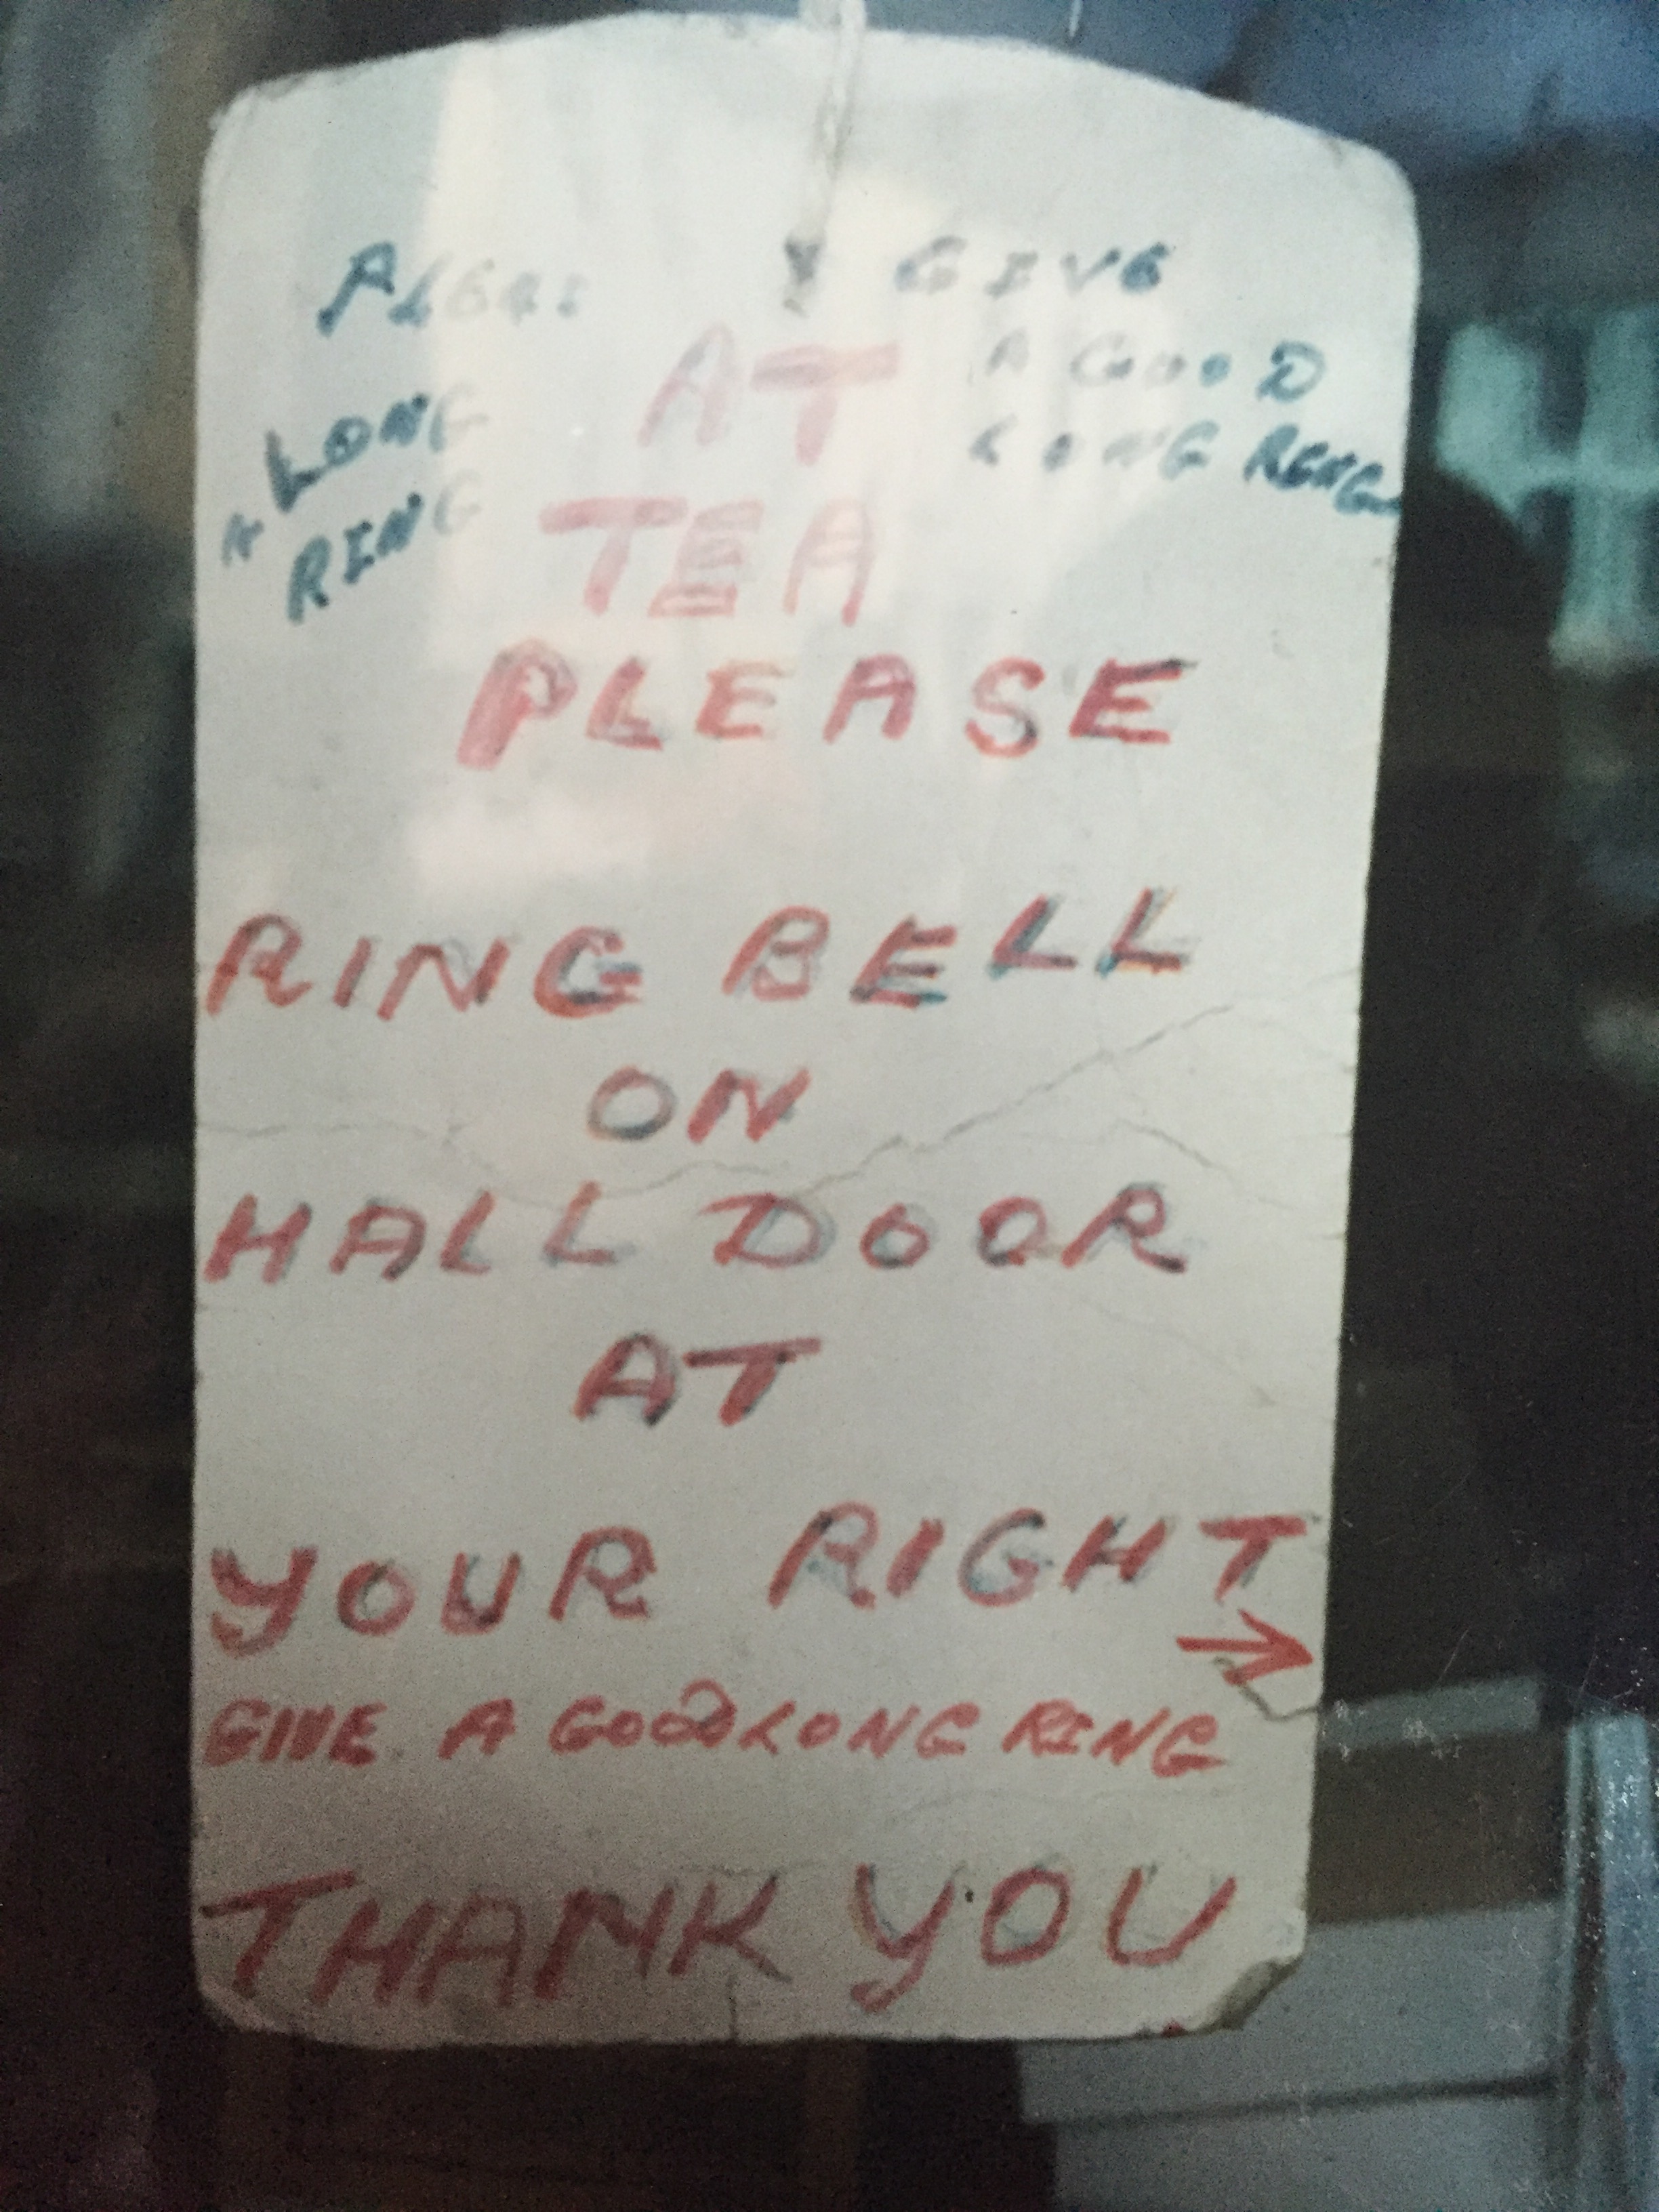 PLEASE GIVE
A GOOD
LONG RING
A LONG
RING
AT
TEA
PLEASE
RING BELL
ON
HALL DOOR
AT
YOUR RIGHT
→
GIVE A GOOD LONG RING
THANK YOU